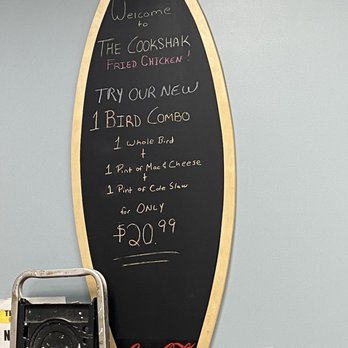 Welcome
to
THE COOKSHAK
FRIED CHICKEN!
TRY OUR NEW
1 BIRD COMBO
1 Whole Bird
+
1 Pint of Mac & Cheese
+
1 Pint of Cole Slaw
for ONLY
$20.99